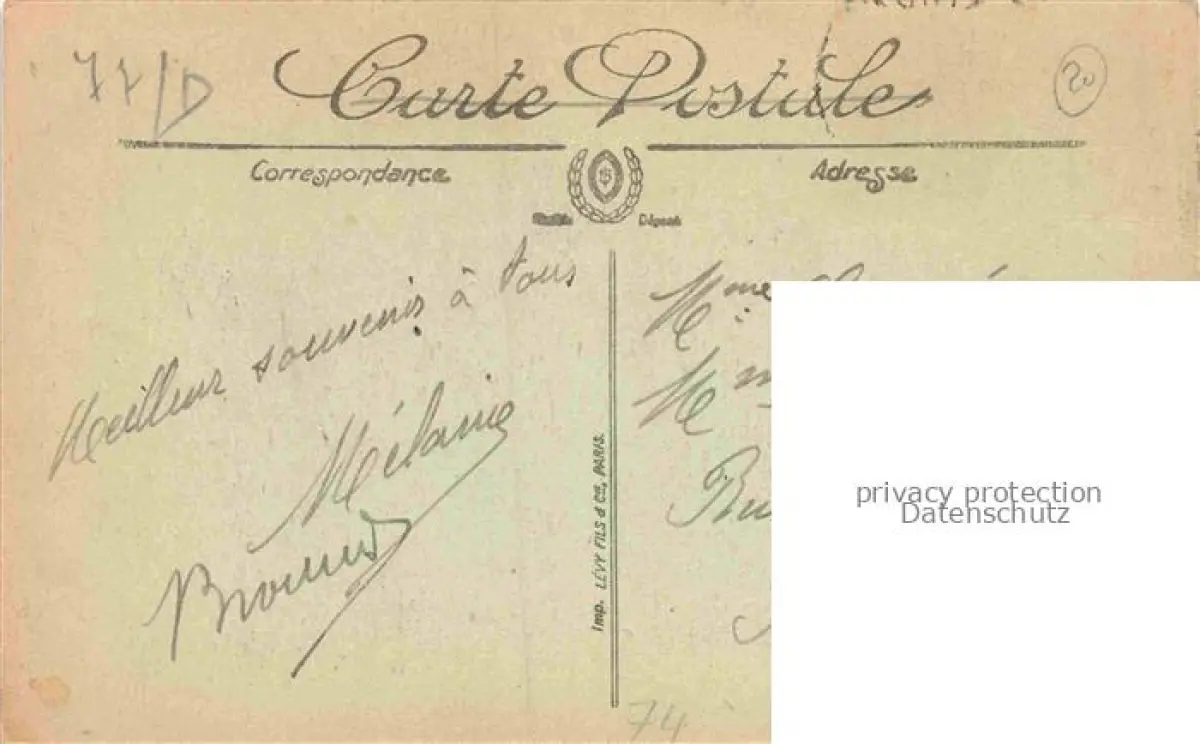 77/D
Carte Postale
20
Correspondance
Adresse
Déposé
Meilleur souvenirs à tous
Mélanie
Imp. LÉVY FILS & Cie, PARIS.
Mme
M
privacy protection
Datenschutz
74